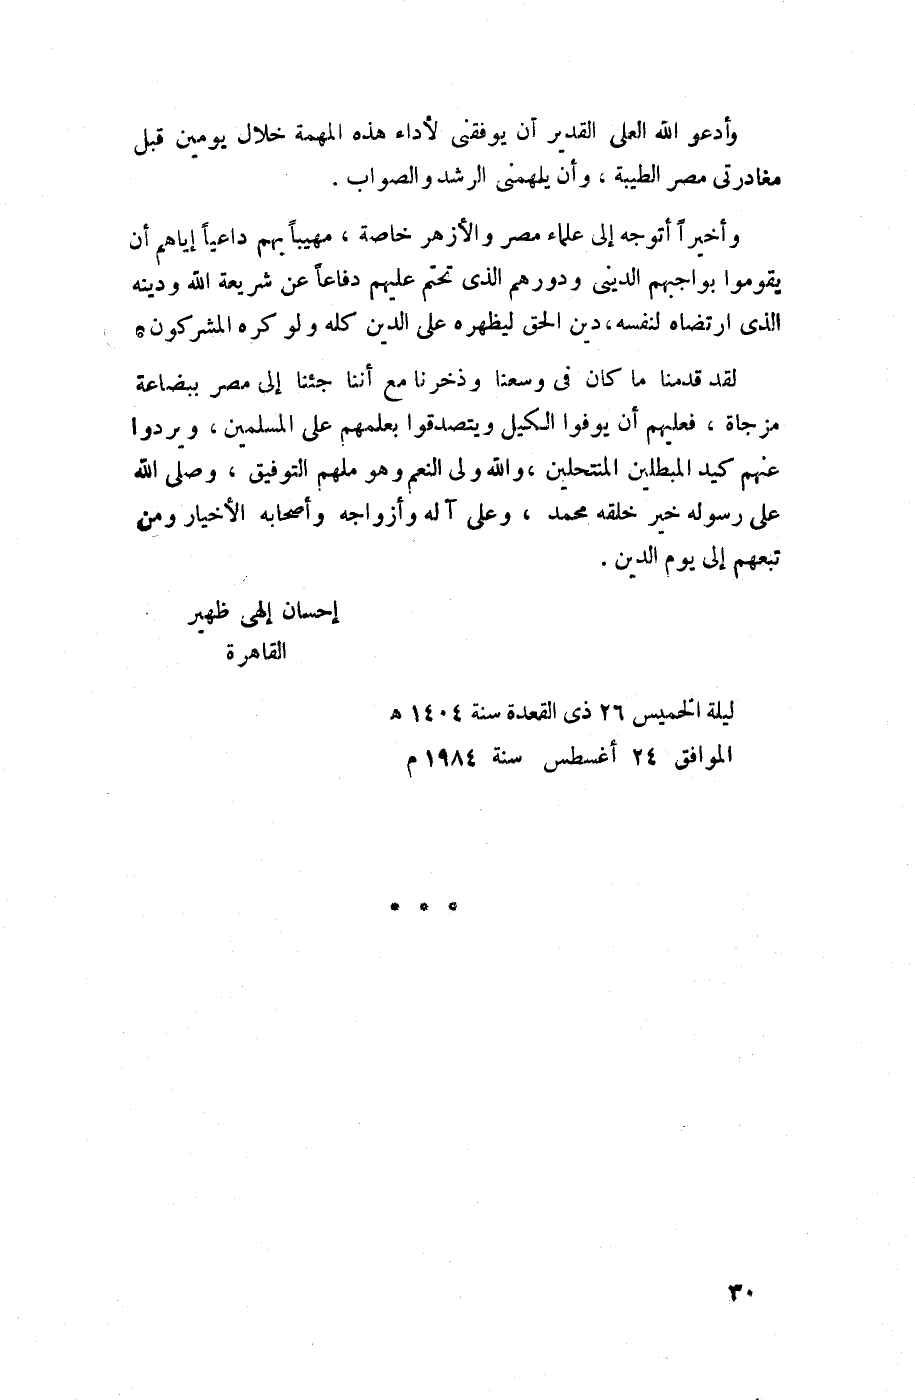 وأدعو الله العلى القدير أن يوفقنى لأداء هذه المهمة خلال يومين قبل
مغادرتى مصر الطيبة ، وأن يلهمنى الرشد والصواب .
وأخيراً أتوجه إلى علماء مصر والأزهر خاصة ، مهيباً بهم داعياً إياهم أن
يقوموا بواجبهم الدينى ودورهم الذى تحتم عليهم دفاعاً عن شريعة الله ودينه
الذى ارتضاه لنفسه، دين الحق ليظهره على الدين كله ولو كره المشركون
لقد قدمنا ما كان فى وسعنا وذخرنا مع أننا جئنا إلى مصر ببضاعة
مزجاة ، فعليهم أن يوفوا الكيل ويتصدقوا بعلمهم على المسلمين ، ويردوا
عنهم كيد المبطلين المنتحلين ، والله ولى النعم وهو ملهم التوفيق ، وصلى الله
على رسوله خير خلقه محمد ، وعلى آله وأزواجه وأصحابه الأخيار ومن
تبعهم إلى يوم الدين .
إحسان إلهى ظهير
القاهرة
ليلة الخميس ٢٦ ذى القعدة سنة ١٤٠٤ هـ
الموافق ٢٤ أغسطس سنة ١٩٨٤ م
* * *
٣٠